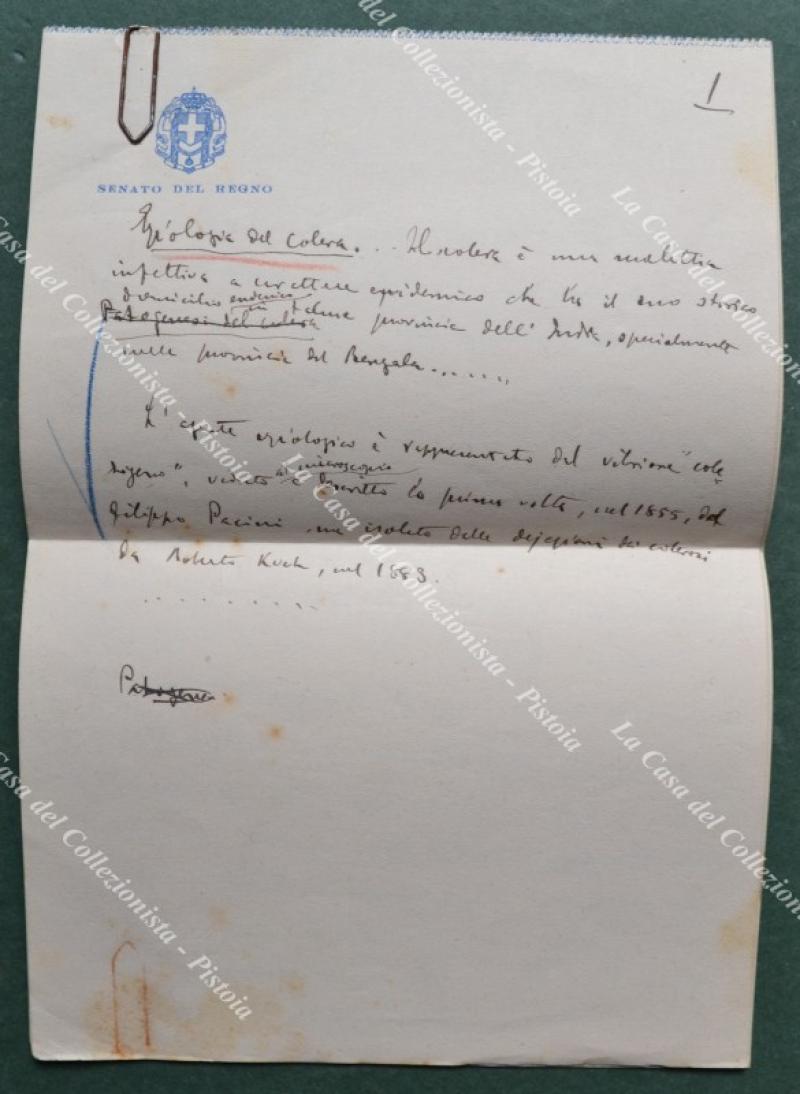 1
SENATO DEL REGNO
Eziologia del colera. .. Il colera è una malattia
infettiva a carattere epidemico che ha il suo storico
domicilio endemico in talune provincie dell' India, specialmente
Patogenesi del colera
nelle provincie del Bengala.......
L' agente eziologico è rappresentato dal vibrione "cole
rigeno", veduto al microscopio e descritto la prima volta, nel 1855, dal
Filippo Pacini, ma isolato dalle dejezioni dei colerosi
da Roberto Koch, nel 1883.
..........
Patogenesi
La Casa del Collezionista - Pistoia
La Casa del Collezionista - Pistoia
La Casa del Collezionista - Pistoia
La Casa del Collezionista - Pistoia
La Casa del Collezionista - Pistoia
La Casa del Collezionista